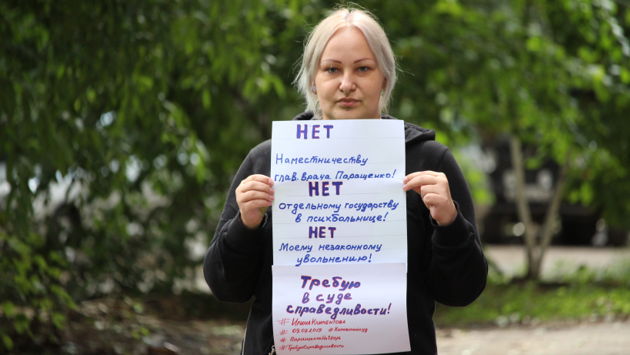 НЕТ
Наместничеству
глав. врача Паращенко!
НЕТ
отдельному государству
в психбольнице!
НЕТ
Моему незаконному
увольнению!
Требую
в суде
справедливости!
#
# 03.07.2019
#
# Требуюсправедливости